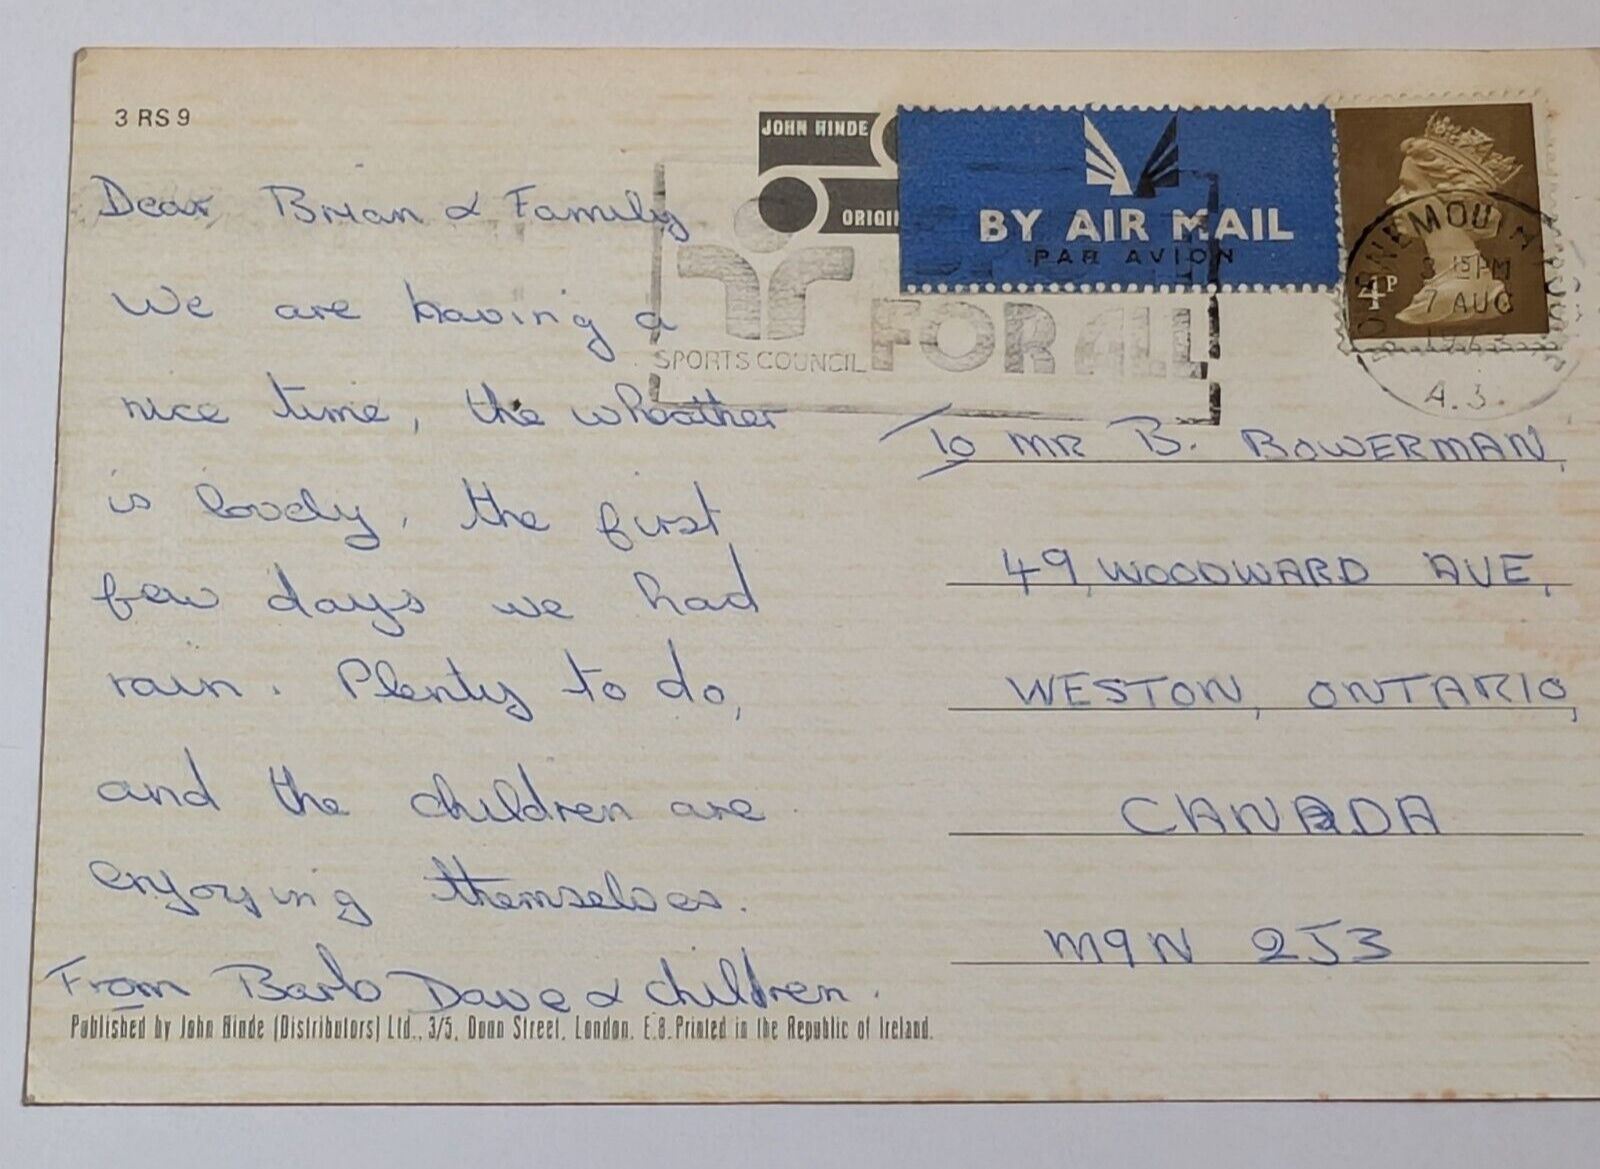 3 RS 9
JOHN HINDE
ORIGIN
BY AIR MAIL
PAR AVION
FOR ALL
SPORTS COUNCIL
4P
BOURNEMOUTH
3 15 PM
7 AUG
1973
A.3.
Dear Brian & Family
We are having a
nice time, the wheather
is lovely, the first
few days we had
rain. Plenty to do,
and the children are
enjoying themselves.
From Barb Dave & children.
To MR B. BOWERMAN,
49, WOODWARD AVE,
WESTON, ONTARIO,
CANADA
M9N 2J3
Published by John Hinde (Distributors) Ltd., 3/5, Dunn Street, London. E.8. Printed in the Republic of Ireland.